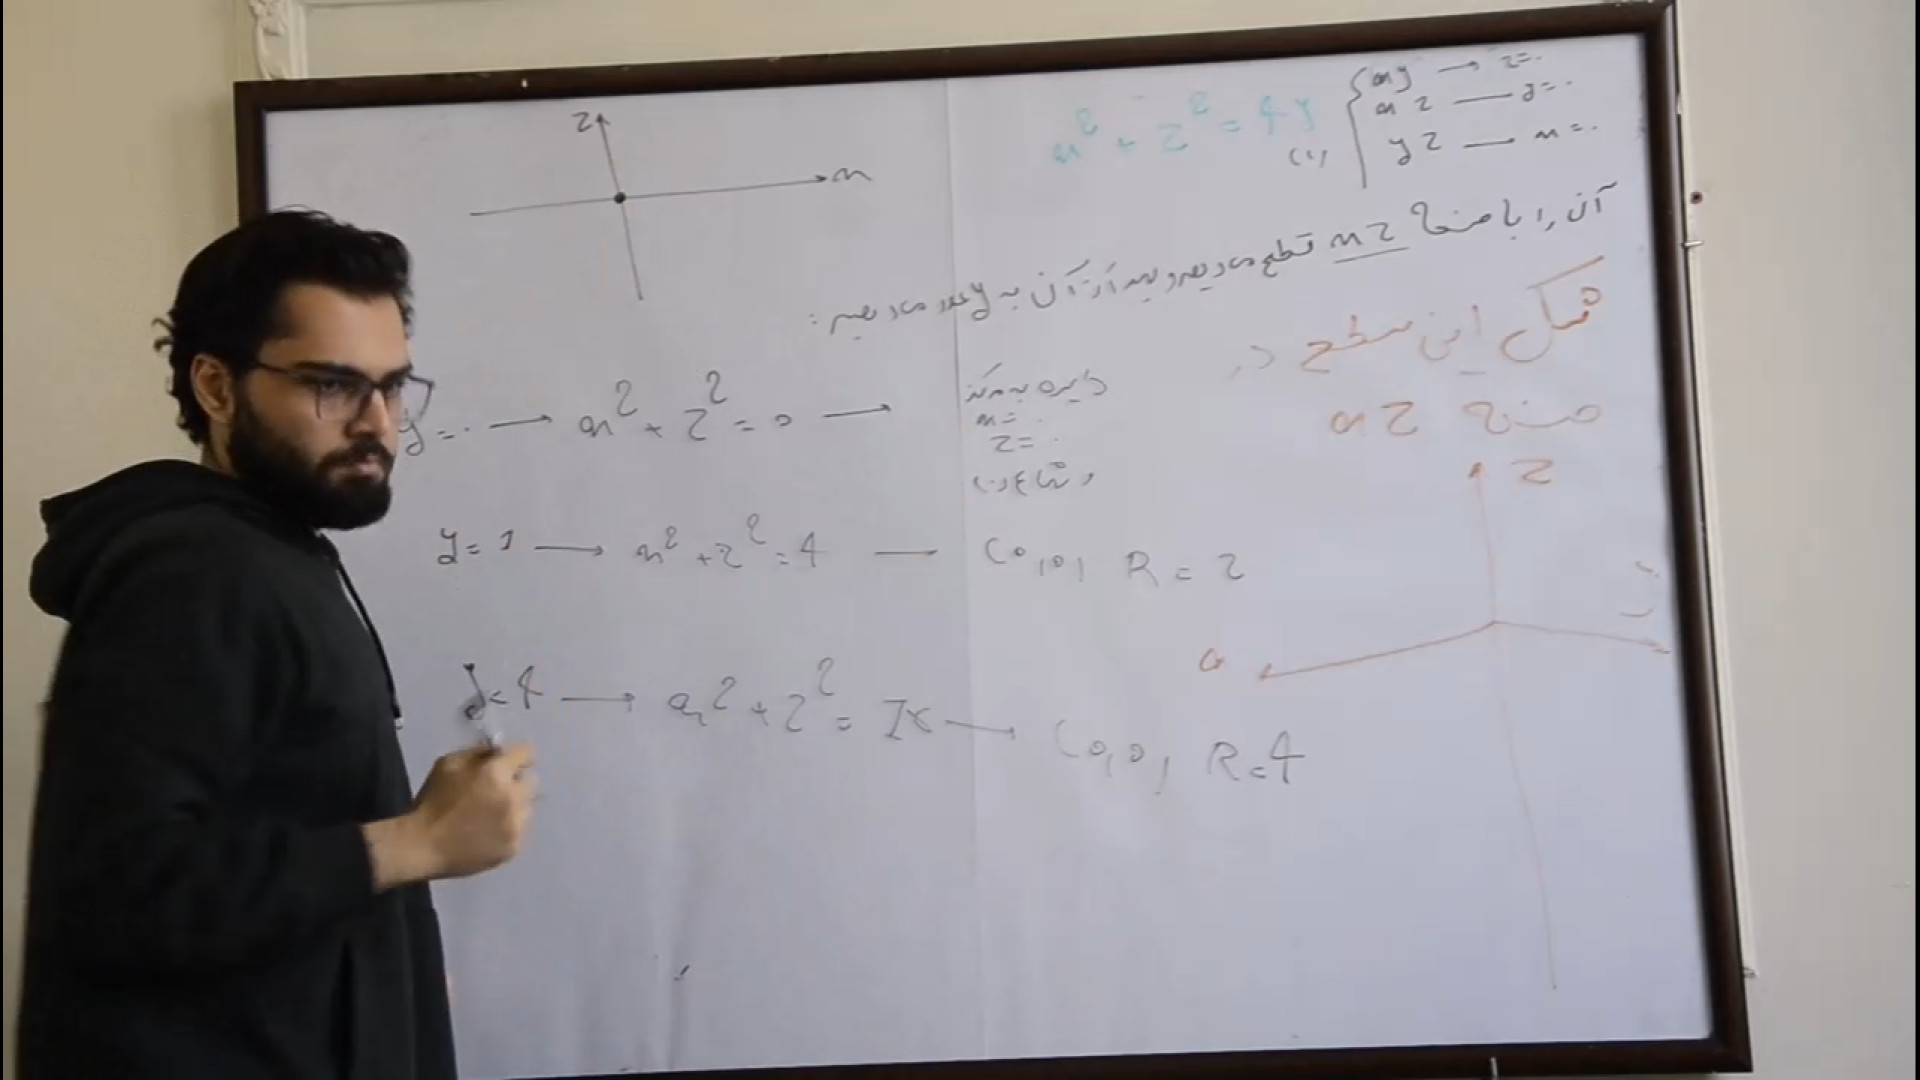 x² + z² = 4y
(۱)
xy → z=۰
xz — y=۰
yz — x=۰
آن را با صفحهٔ xz قطع می‌دهیم و بعد از آن به y عدد می‌دهیم:
z
x
شکل این سطح در
صفحه xz
y=۰ → x² + z² = 0 → دایره به مرکز
x=۰
z=۰
و شعاع (۰)
y=1 → x² + z² = 4 — (0,0) R=2
y=4 → x² + z² = 16 → (0,0) R=4
z
x
y